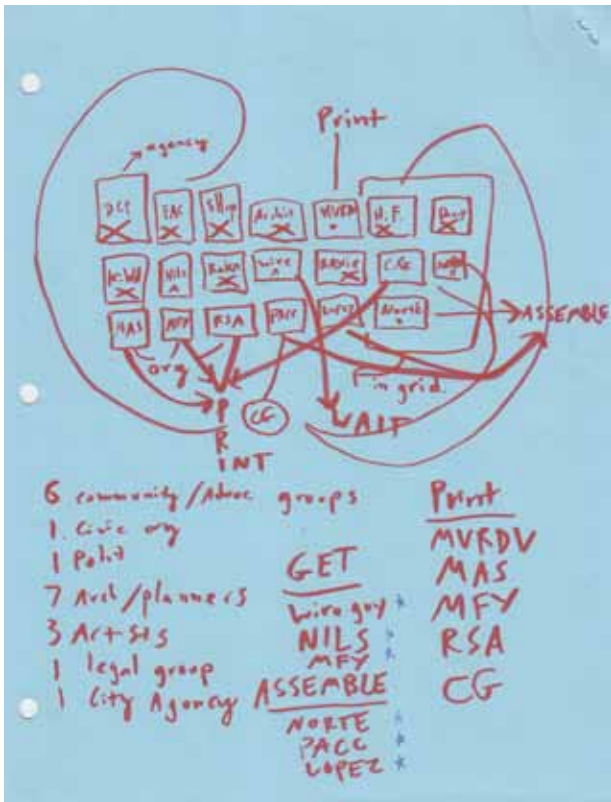 Print
agency
DCP EAC Shop Archit MVRDV H.F.
Nils Wire C.G.
MAS MFY RSA PACC Lopez Norte
ASSEMBLE
org
in grid.
CG
WAIP
PRINT
6 community/Advoc groups
1 Civic org
1 Polit
7 Arch/planners
3 Artists
1 legal group
1 City Agency
GET
Wire guy *
NILS *
MFY *
ASSEMBLE
NORTE *
PACC *
LOPEZ *
Print
MVRDV
MAS
MFY
RSA
CG